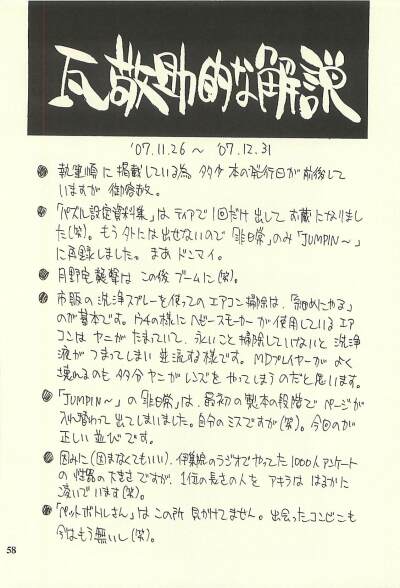 瓦敬助的な解説
'07.11.26 ～ '07.12.31
執筆順に掲載している為、多少 本の発行日が前後して
いますが 御容赦。
「パズル設定資料集」はティアで1回だけ出してお蔵になりまし
た(笑)。もう外には出せないので「非日常」のみ「JUMPIN～」
に再録しました。まあ ドンマイ。
月野宅襲撃は この後 ブームに(笑)。
市販の洗浄スプレーを使ってのエアコン掃除は、「細めにやる」
のが基本です。ウチの様に ヘビースモーカーが使用しているエア
コンは ヤニがたまっていて、永いこと掃除していないと 洗浄
液がつまってしまい 逆流する様です。MDプレイヤーが よく
壊れるのも 多分ヤニがレンズを やってしまうのだと思います。
「JUMPIN～」の「非日常」は、最初の製本の段階で ページが
入れ替わって出てしまいました。自分のミスですが(笑)。今回のが
正しい並びです。
因みに(因まなくてもいい)、伊集院のラジオでやった1000人アンケート
の性器の大きさですが、1位の長さの人を アキラは はるかに
凌いでいます(笑)。
「ペットボトルさん」は この所 見かけてません。出会ったコンビニも
今はもう無いし(笑)。
58